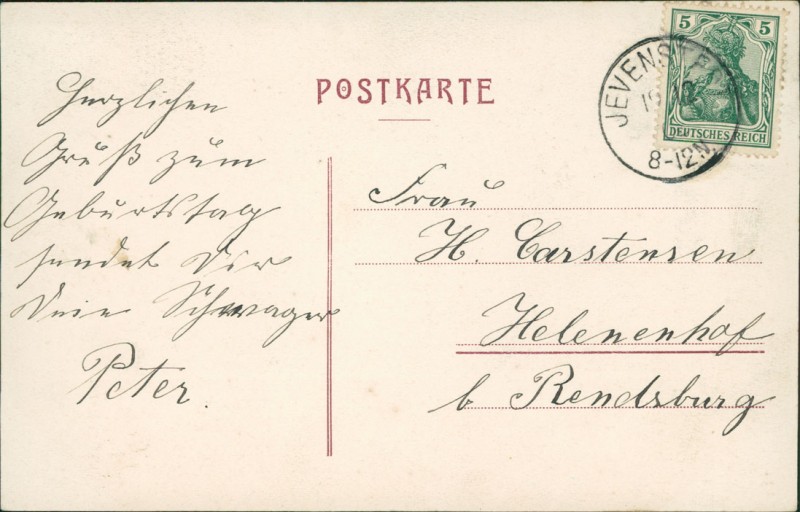 Herzlichen
Gruß zum
Geburtstag
sendet Dir
Dein Schwager
Peter.
POSTKARTE
5 5
DEUTSCHES REICH
8-12N.
Frau
H. Carstensen
Helenenhof
b Rendsburg